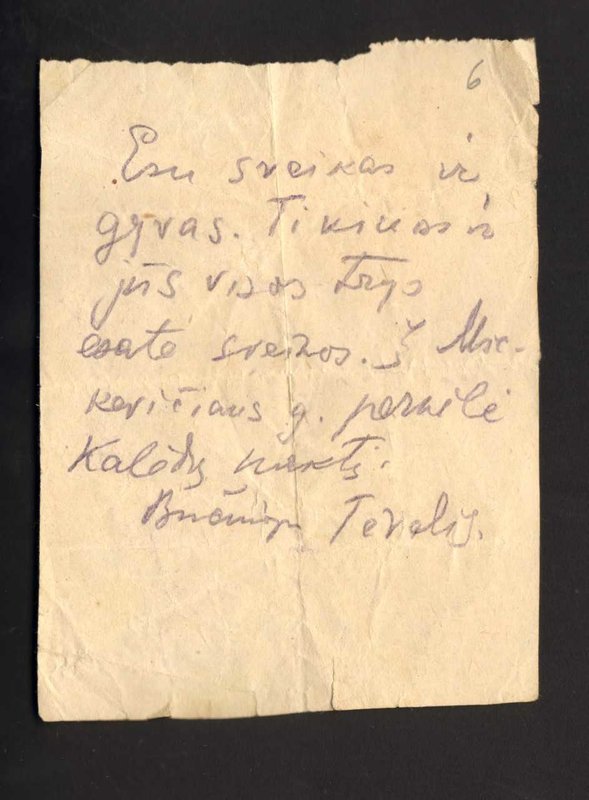 6
Esu sveikas ir
gyvas. Tikiuos ir
jūs visos trys
esate sveikos. Į Mic-
kevičiaus g. perkėlė
Kalėdų naktį.
Bučiuoju Tėvelis.